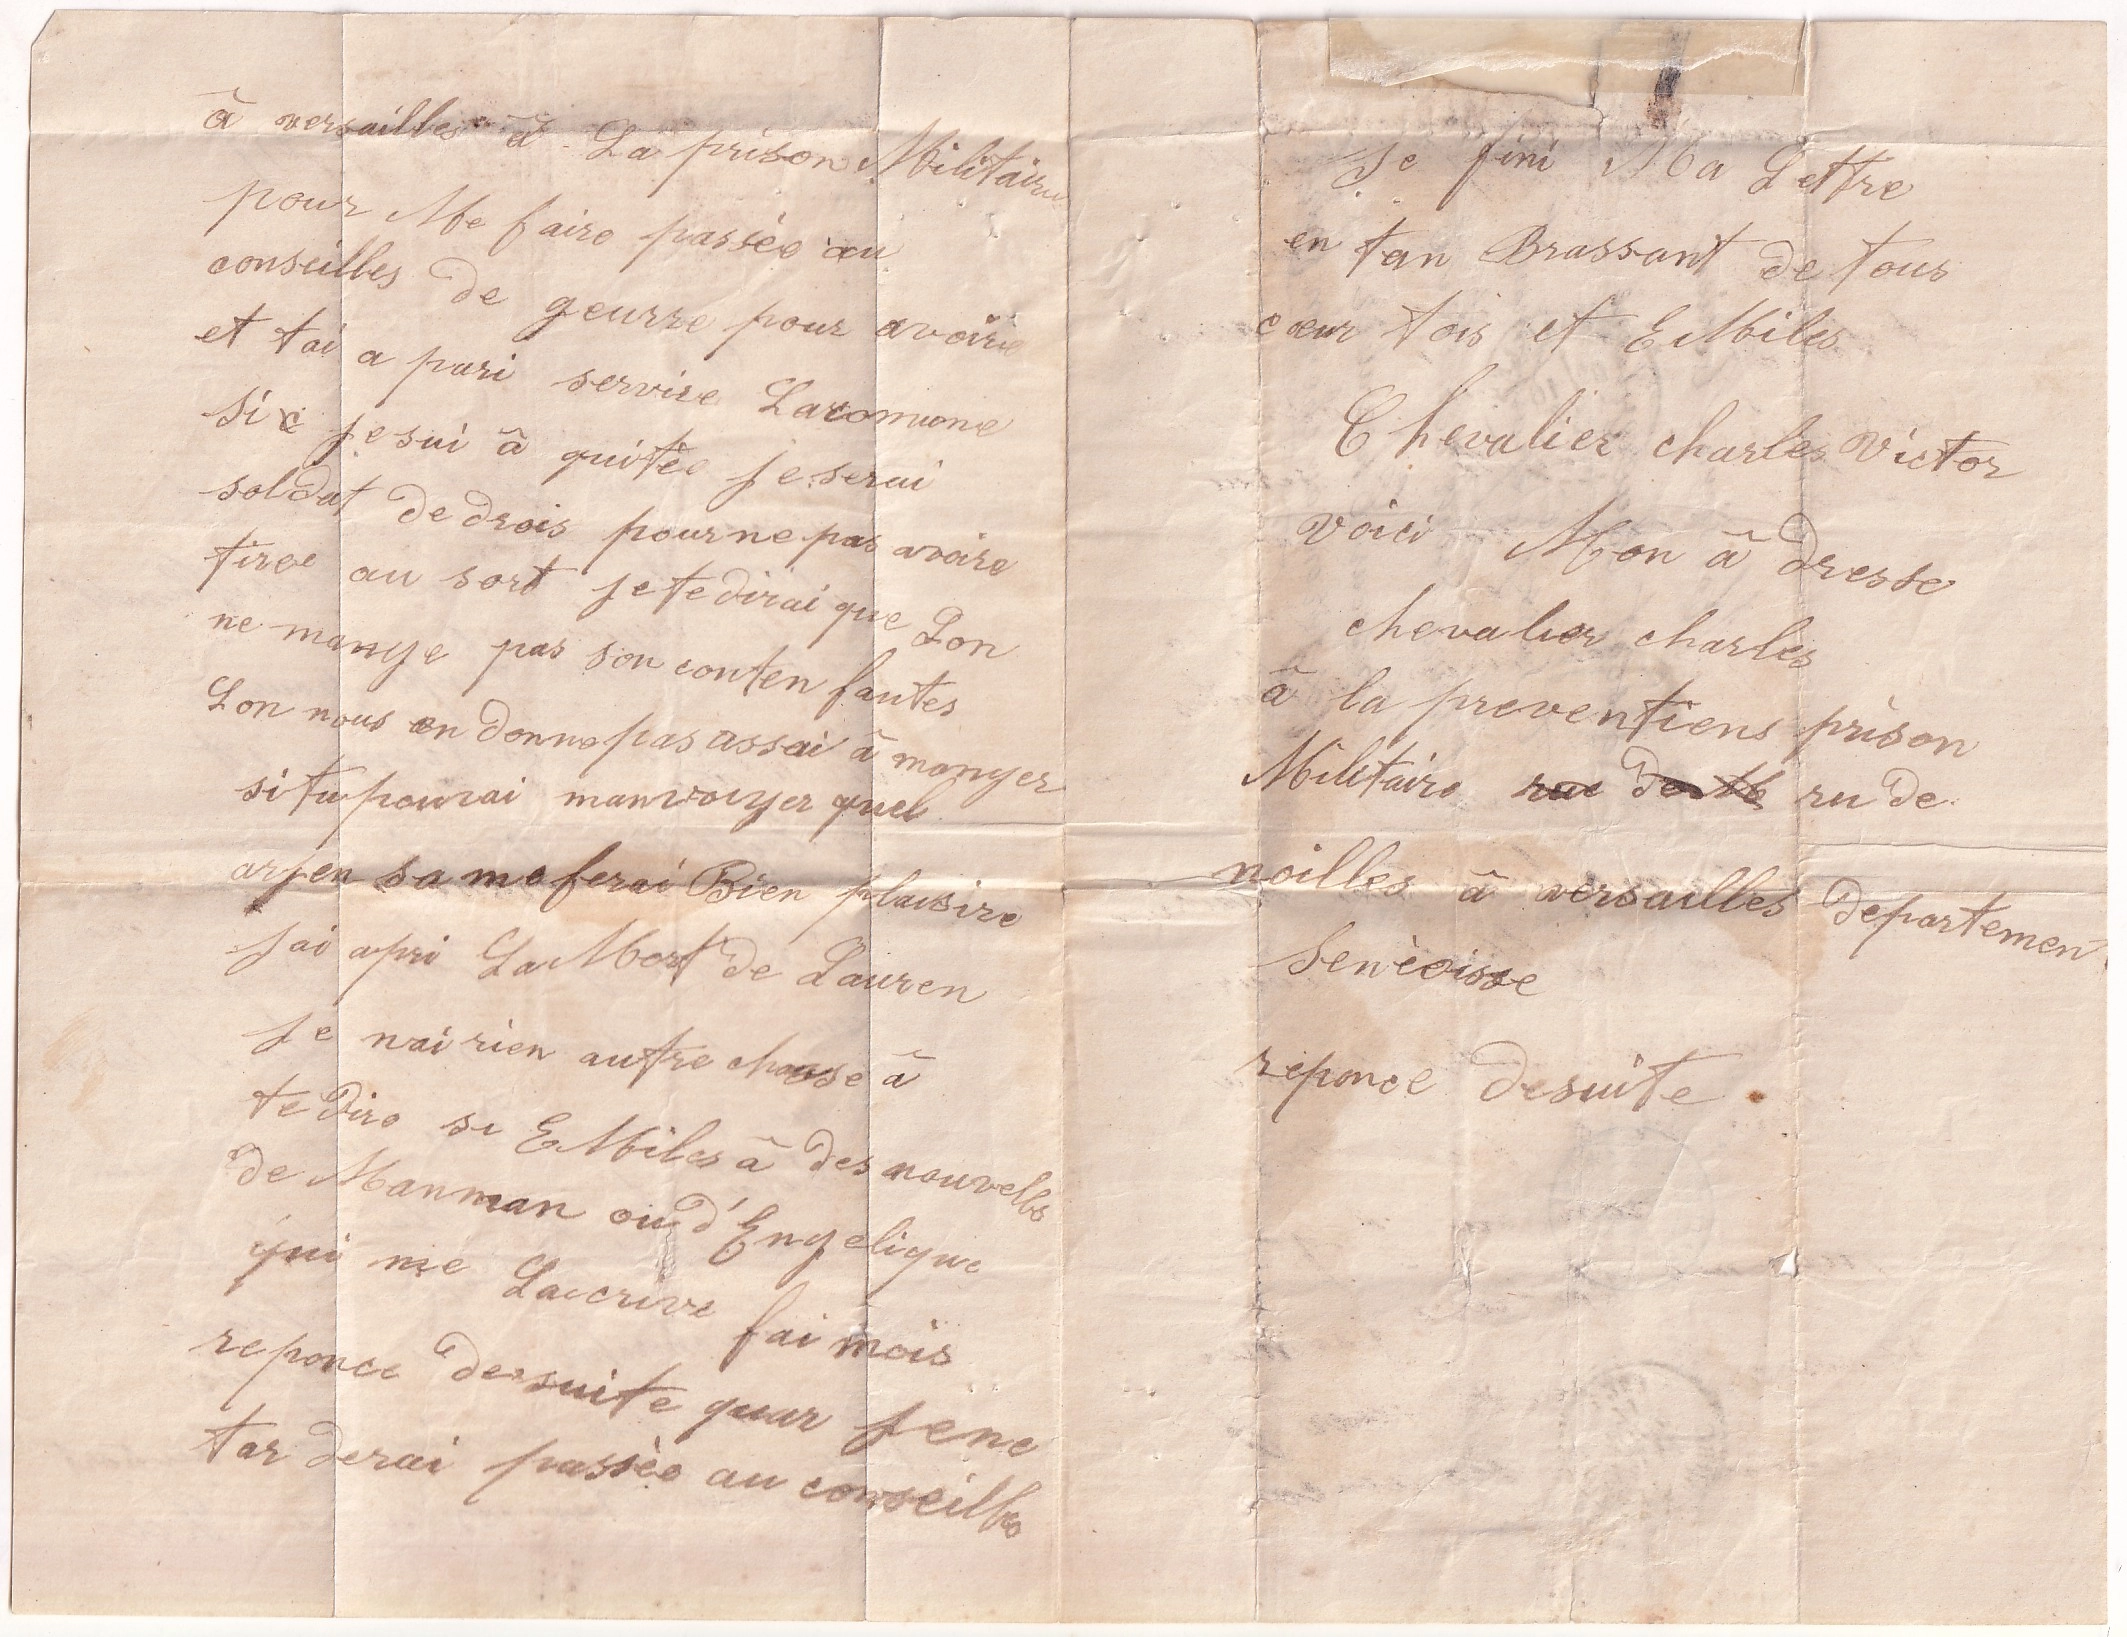 â versailles â La prison Militaire
pour Me faire passée au
conseilles de geurre pour avoire
et tai a pari servire Lacomune
Si je sui â quitée je serai
soldat de drois pour ne pas avoire
tiree au sort je te dirai que Lon
ne mange pas son conten fautes
Lon nous en donne pas assai â manger
si tu pourai manvoiyer quel
arjen sa me ferai Bien plaisire
jai apri La Mort de Lauren
je nai rien autre chause â
te dire si EMiles â des nouvelles
de Manman ou d'Engelique
qui me Lacrive fai mois
reponce de suite quar je ne
tarderai passée au conseilles
Je fini Ma Lettre
en tan Brassant de tous
cœur tois et EMiles
Chevalier charles Victor
voici Mon â dresse
chevalier charles
â la preventiens prison
Militaire rue de ru de
noilles â versailles departemen
Senèoisse
reponce desuite.